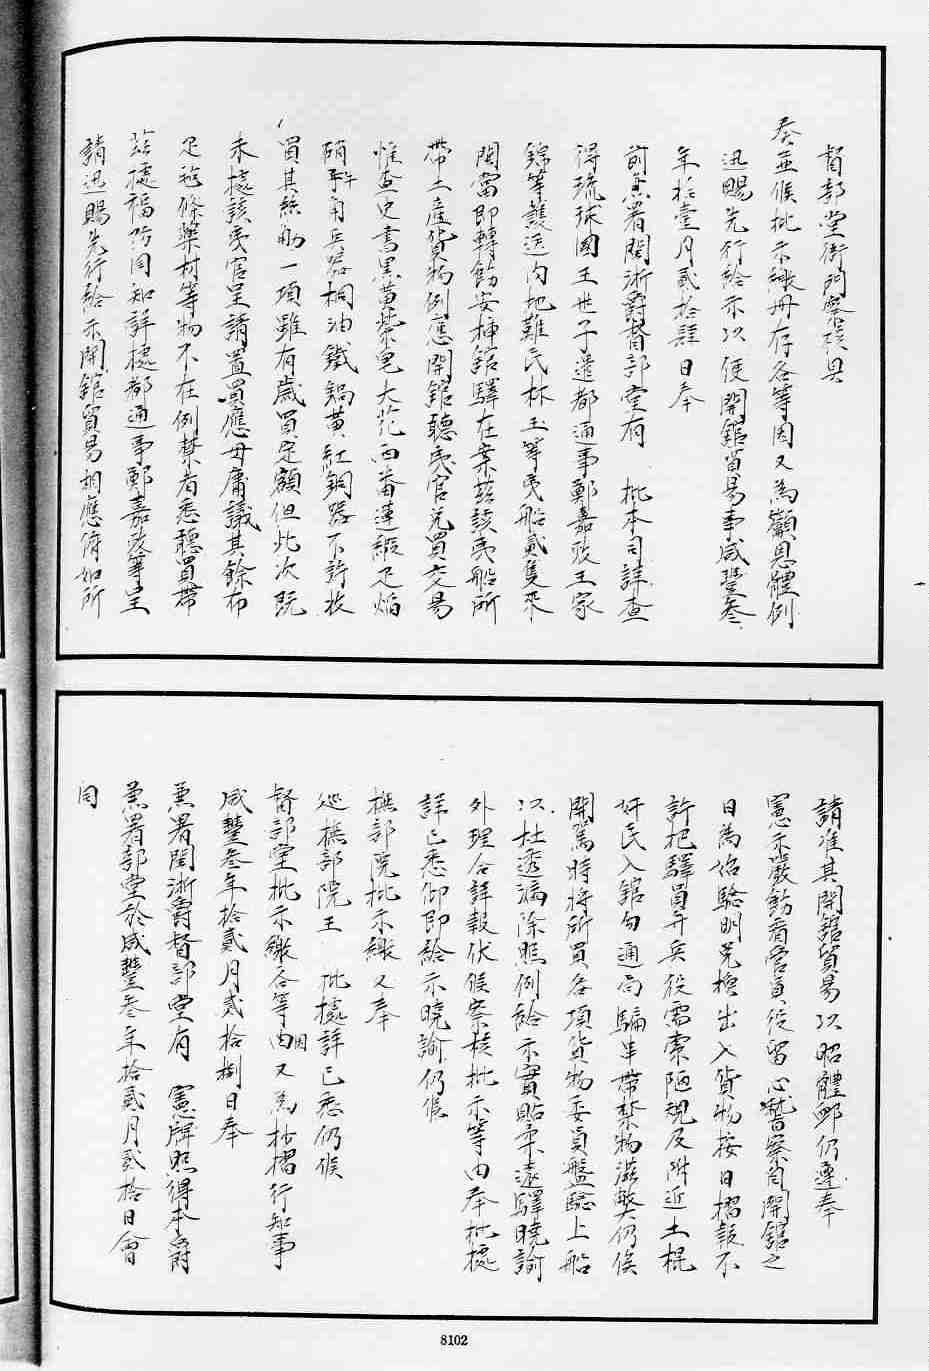 督部堂衙門察核具
奏並候批示繳冊存各等因又為籲恩體例
迅賜先行給示以便開館貿易事咸豐叁
年拾壹月貳拾肆日奉
前兼署閩浙爵督部堂有　批本司詳查
得琉球國王世子遣都通事鄭嘉政王家
錦等護送內地難民林玉等夷船貳隻來
閩當即轉飭安揷館驛在案茲該夷船所
帶土產貨物例應開館聽夷官兌買交易
惟查史書黑黃紫皂大花西番蓮緞疋焰
硝軍兵器桐油鐵鍋黃紅銅器不許收
買其絲觔一項雖有歲買定額但此次既
未據該夷官呈請置買應毋庸議其餘布
疋毡條藥材等物不在例禁者悉聽買帶
茲據福防同知詳據都通事鄭嘉政等呈
請迅賜先行給示開館貿易相應俯如所
請准其開館貿易以昭體卹仍遵奉
憲示嚴飭看營員役留心稽察自開館之
日為始驗明兌檐出入貨物按日摺報不
許把驛員弁兵役需索陋規及附近土棍
奸民入館勾通局騙串帶禁物滋弊仍俟
開駕時將所買各項貨物委員盤驗上船
以杜透漏除照例給示實貼柔遠驛曉諭
外理合詳報伏候察核批示等由奉批據
詳已悉仰即給示曉諭仍候
撫部院批示繳又奉
巡撫部院王　批據詳已悉仍候
督部堂批示繳各等因由又為抄摺行知事
咸豐叁年拾貳月貳拾捌日奉
兼署閩浙爵督部堂有　憲牌照得本爵
兼署部堂於咸豐叁年拾貳月貳拾日會
同
8102